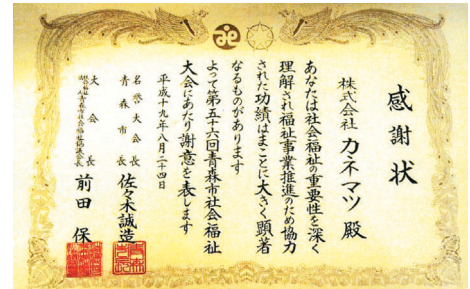 感謝状
株式会社 カネマツ 殿
あなたは社会福祉の重要性を深く
理解され福祉事業推進のため協力
された功績はまことに大きく顕著
なるものがあります
よって第五十六回青森市社会福祉
大会にあたり謝意を表します
平成十九年八月二十四日
名誉大会長
青森市長 佐々木誠造
大会長
前田 保